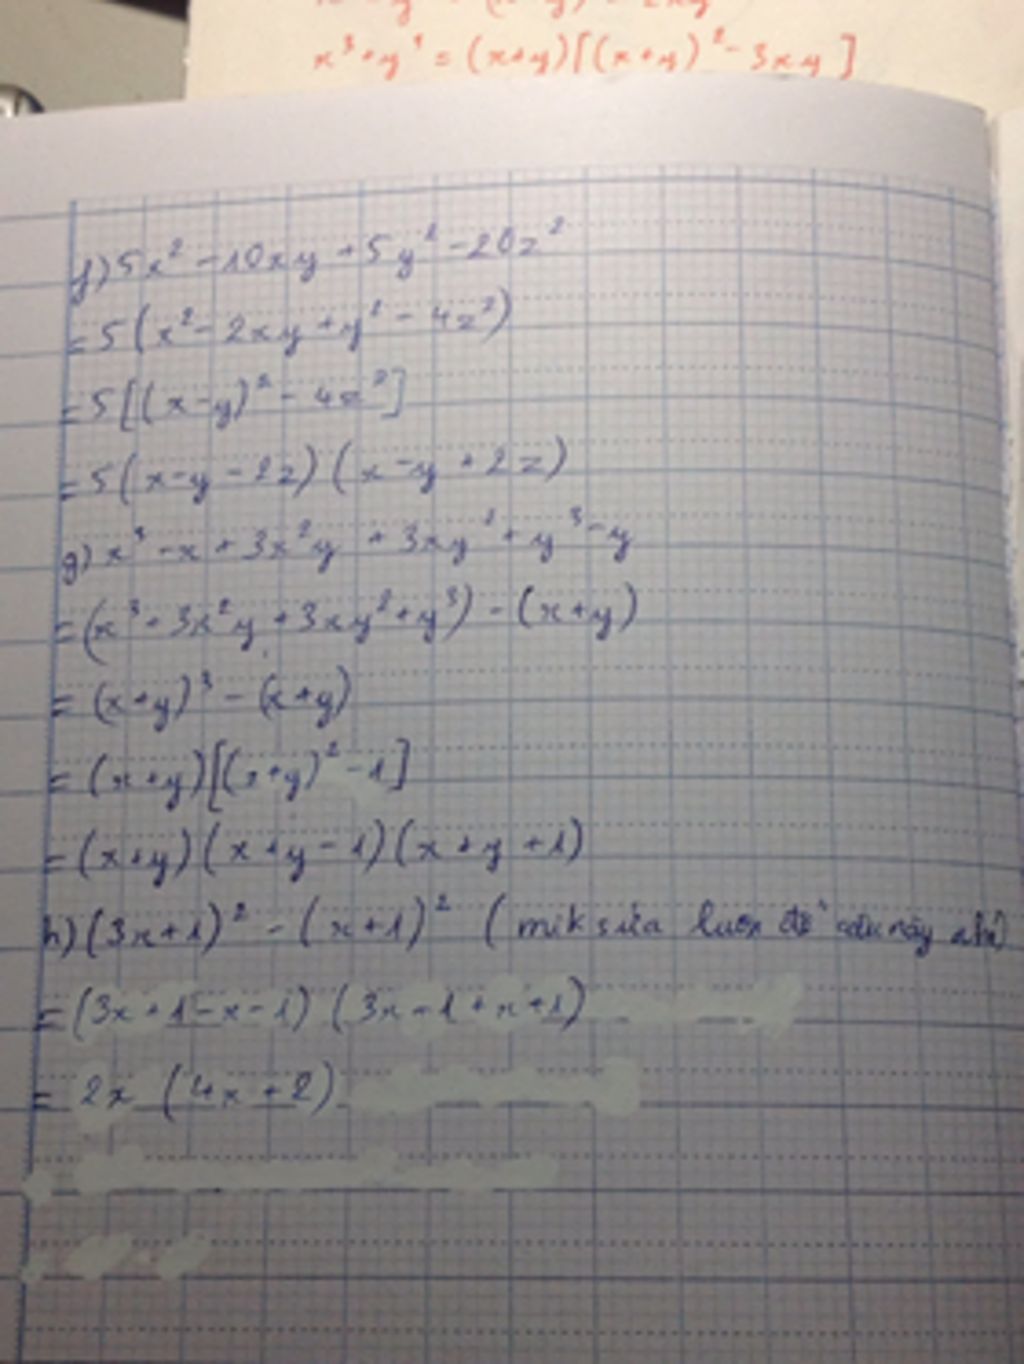 x³+y³ = (x+y)[(x+y)²-3xy]
f) 5x² - 10xy + 5y² - 20z²
= 5(x² - 2xy + y² - 4z²)
= 5[(x-y)² - 4z²]
= 5(x-y-2z)(x-y+2z)
g) x³ - x + 3x²y + 3xy² + y³ - y
= (x³+3x²y+3xy²+y³) - (x+y)
= (x+y)³ - (x+y)
= (x+y)[(x+y)²-1]
= (x+y)(x+y-1)(x+y+1)
h) (3x+1)² - (x+1)² (mik sửa luôn đề câu này nhé)
= (3x+1-x-1)(3x+1+x+1)
= 2x (4x+2)